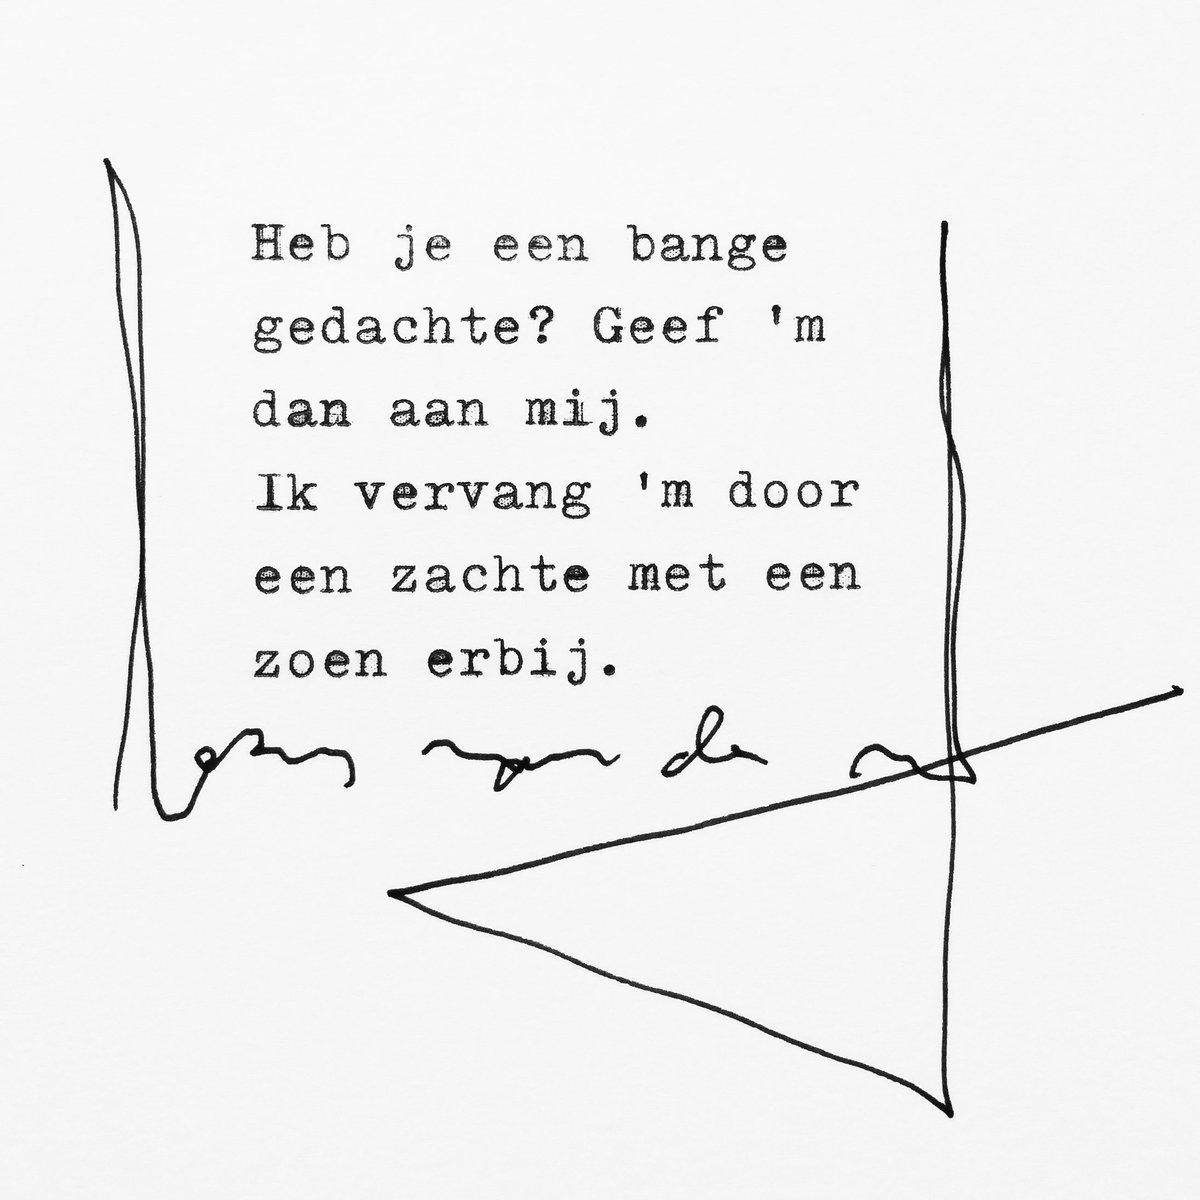 Heb je een bange
gedachte? Geef 'm
dan aan mij.
Ik vervang 'm door
een zachte met een
zoen erbij.